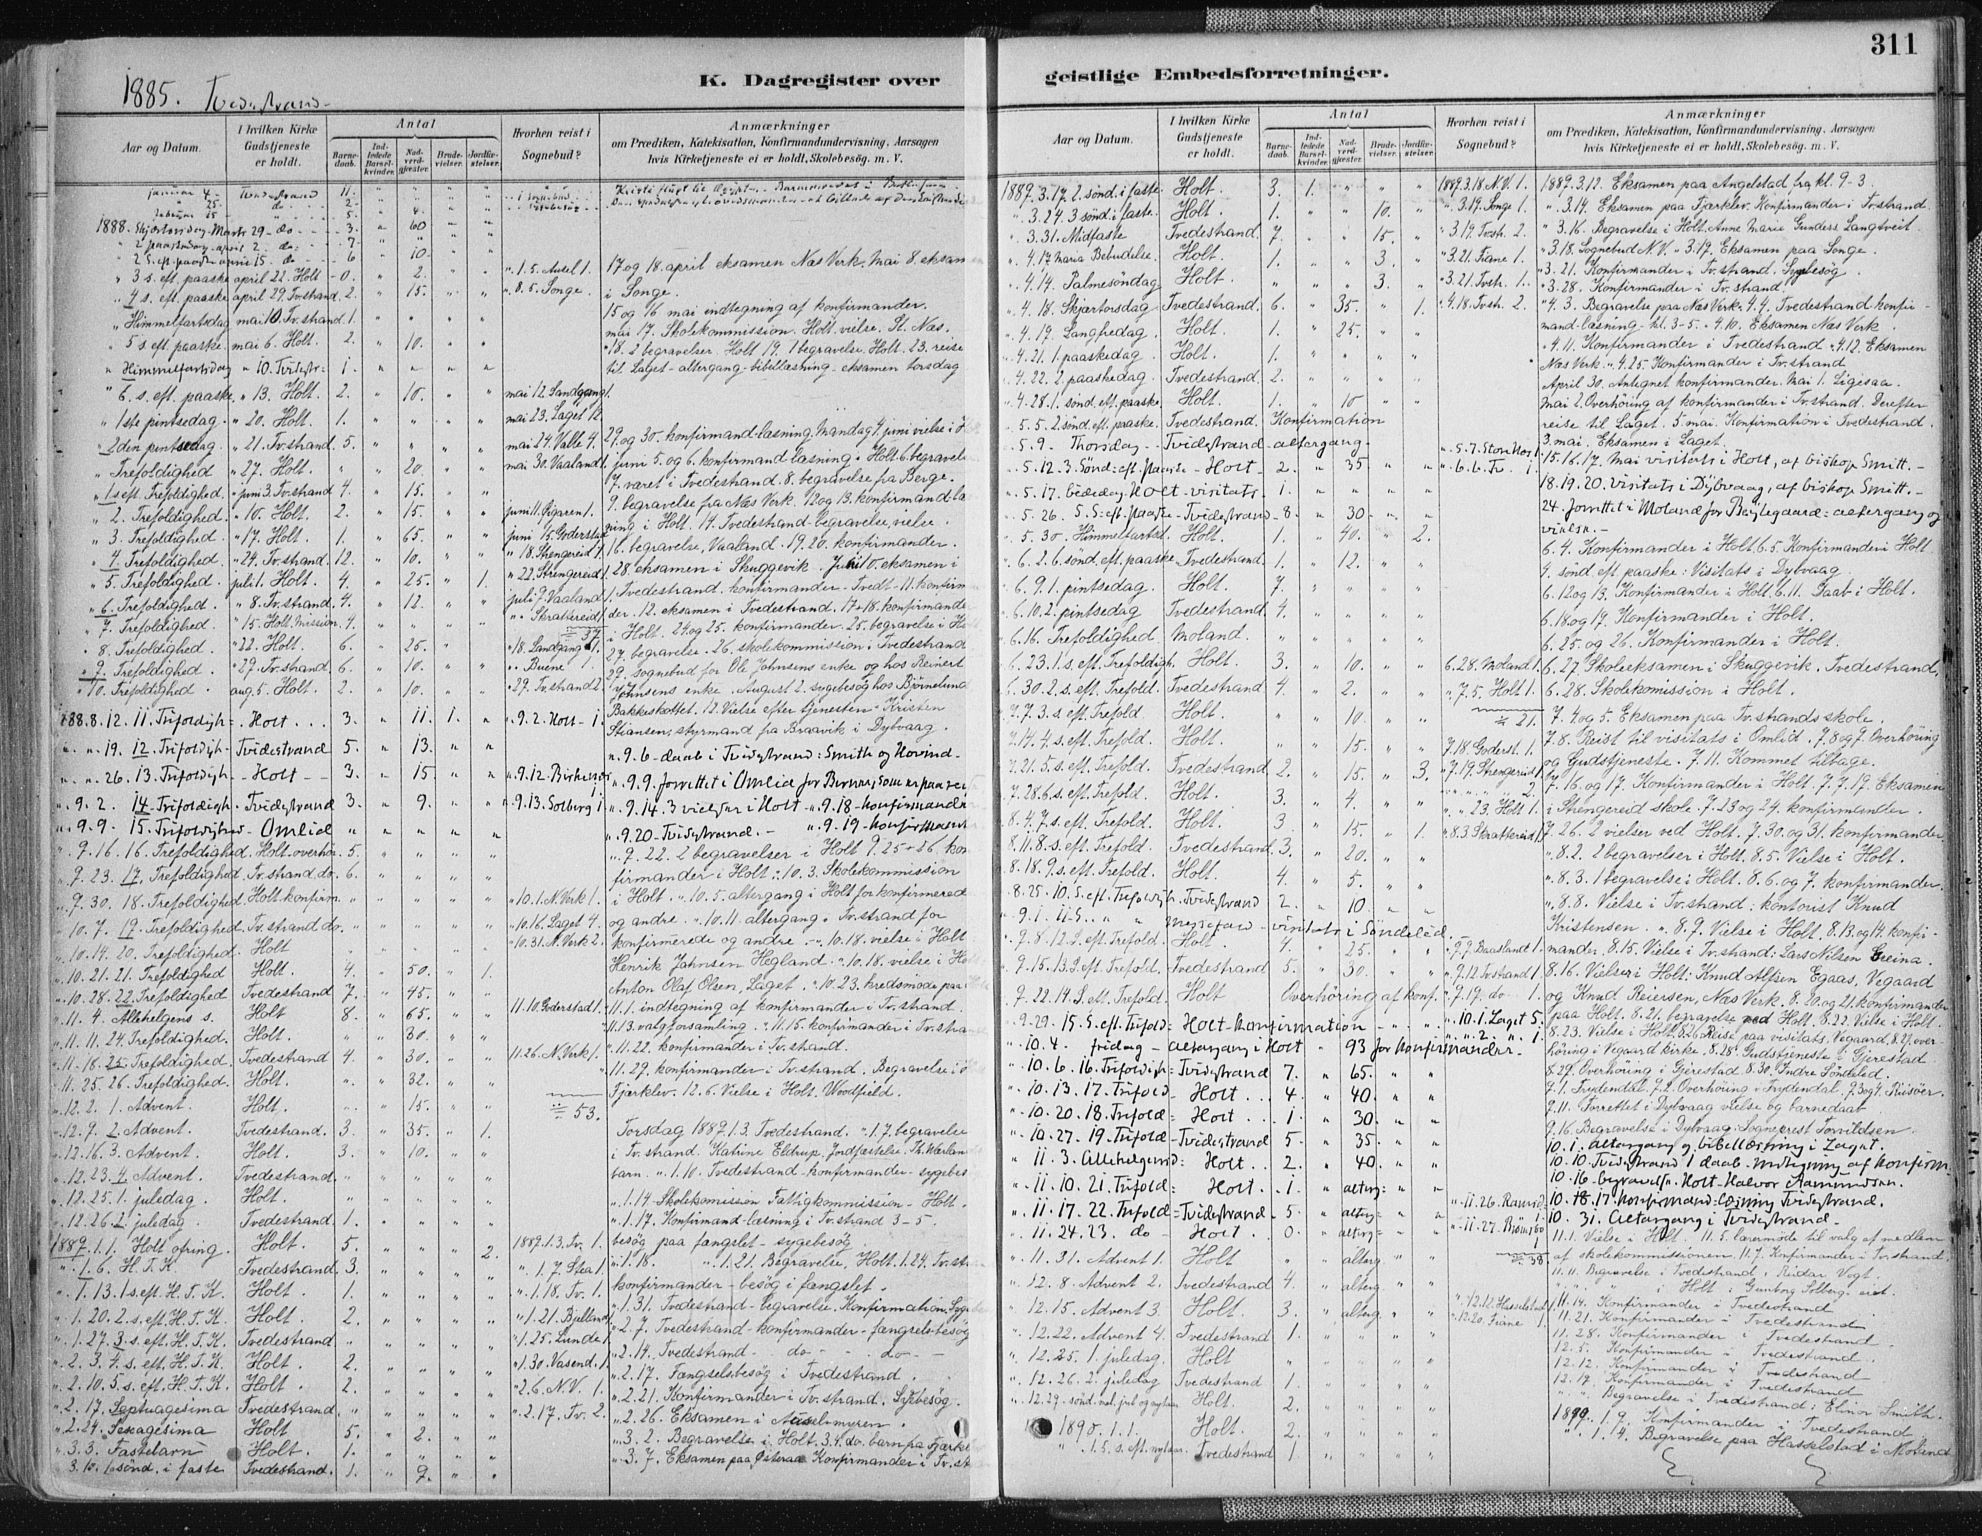 311
1885. Tvedestrand
K. Dagregister over
geistlige Embedsforretninger.
Aar og Datum.
I hvilken Kirke Gudstjeneste er holdt.
Antal
Barnedaab.
Indledede Barselkvinder.
Nadverdgjester.
Brudevielser.
Jordfæstelser.
Hvorhen reist i Sognebud?
Anmærkninger
om Prædiken, Katekisation, Konfirmandundervisning. Aarsagen
hvis Kirketjeneste ei er holdt. Skolebesøg. m. V.
januar 4 - Tvedestrand 11. " " " "
" 25. do - 2 -
februar 15 - " - 5 - " 4.
1888. Skjærtorsdag Marts 29 - do - 3. " 60 " "
" 2 paaskedag - april 2. do - 7 "
" 2 S. eft. paaske april 15. do - 6 " 10. "
" 3 s. eft. paaske april 22. Holt - 0. " 2. " " " 1.5. Ausel 1. 17 og 18. april eksamen Næs Verk. Mai 8. eksamen
" 4 s. eft. paaske april 29. Tv.strand 2. " 15. " " " 8.5. Songe. i Songe.
" Himmelfartsdag mai 10. Tv.strand 1. " " " " 15 og 16 mai indtegning af konfirmander.
" 5 s. eft. paaske. mai 6. Holt. 2. " 10. " " mai 17. Skolekommission. Holt. vielse. St. Næs.
18. 2 begravelser. Holt 19. 1 begravelse. Holt. 23. reise
" Himmelfartsdag " 10. Tvedestr: 1. " " " " til Laget - altergang - bibellæsning - eksamen torsdag
" 6. s. eft. paaske. " 13. Holt. 2. " 10. " " mai 12. Landgang 1.
" 1ste pintsedag. " 20. Holt. 1. " " " " mai 23. Laget 12.
" 2den pintsedag. " 21. Tv.strand. 5. " " " " mai 24. Valle 4. 29. og 30. konfirmand læsning. Mandag 4. juni vielse i
" Trefoldighed " 27. Holt. " " 20. " " mai 30. Vaaland 1. juni 5. og 6. konfirmand læsning. Holt 6. begravelse
" 1 s eft. Trefoldighed " juni 3. Tv.strand 4. " 15. " " 7. været i Tvedestrand. 8. begravelse fra Berge.
" 2. Trefoldighed. " 10. Holt. 2. " 15. " " 9. begravelse fra Næs Verk. 12 og 13. konfirmand læ
" 3. Trefoldighed " 17. Holt. 1. " 65. " " juni 15. Goderstad ning i Holt. 14. Tvedestrand. begravelse, vielse.
" 4. Trefoldighed. " 24. Tv.strand. 12. " 10. " " " 18. Strengereid 1. 16. begravelse, Vaaland. 19. 20. konfirmander.
" 5. Trefoldighed juli 1. Holt. 4. " 25. " 1. " 22. Strengereid 1. 28. eksamen i Skuggevik. Juli 10. eksamen i
" 6. Trefoldighed. " 8. Tv.strand. 4. " 12. " " juli 7. Vaaland 1. Tvedestrand. konfirmander. Tvedt - 11. konfirman
" 7. Trefoldighed. " 15. Holt. Mission. 4. " " " " " Skrattereid 1. der. 12. eksamen i Tvedestrand. 17 + 18. konfirmander
÷ 37. i Holt. 24. og 25. konfirmander. 25. begravelse i Holt
" 8. Trefoldighed. " 22. Holt. 6. " 25. " " " 18. Landgang 1. 27. begravelse. 26. skolekommission i Tvedestrand
" 9. Trefoldighed. " 29. Tv.strand. 6. " 10. " " " Buene 1. 29. sognebud for Ole Johnsens enke og hos Reinert
" 10. Trefoldighed. aug. 5. Holt. 2. " 10. " " " 29. Tv.strand 2. Johnsens enke. August 2. sygebesøg hos Bjørnelund
188. 8. 12. 11. Trifoldigh: - Holt ... 3. " 11. 1. " " 9.2. Holt - 1. Bakkeskottet. 12. Vielse efter tjenesten - Kristen
Stiansen, styrmand fra Braavik i Dybvaag.
" " 19. 12. Trifoldigh - Tvidestrand 5. " 13. " " " 9.6 - daab i Tvidestrand: Smith og Hovind -
" " 26. 13. Trifoldigh - Holt - - 3. " 15. " " " 9.12.
" 9. 2. 14. Trifoldigh - Tvidestrand 3. " 9. " " " 9.13. Solberg 1. " 9.14. 3 vielser i Holt - " 9.18 - konfirmander
" 9. 9. 15. Trifoldighed - Omlid " " " " " " 9.20. Tvidestrand. - " 9.19 - konfirmander
" 9. 16. 16. Trefoldighed. Holt - overhør. 5. " " " " " 9. 22. 2 begravelser i Holt 9.25 - 26 kon
" 9. 23. 17. Trefoldighed. Tv.strand. do. 6. " " " " firmander i Holt. 10. 3. Skolekommission
" 9. 30. 18. Trefoldighed. Holt. konfirm. " " " " " " 10.1. N. Verk 1. i Holt. " 10.5. altergang i Holt for konfirmerede
" 10. 7. 19. Trefoldighed. Tv.strand do. " " " " " " 10.16. Laget 4. og andre. " 10.11. altergang i Tv.strand for
" 10. 14. 20. Trefoldighed. Holt " " " " " " 10.31. N. Verk 2. konfirmerede og andre. " 10.18. vielse i Holt
" 10. 21. 21. Trefoldighed Holt. 4. " 50. " 1. Henrik Johnsen Hegland. " 10.18. vielse i Holt
" 10. 28. 22. Trefoldighed Tvedestrand 7. " 45. " " Anton Olaf Olsen, Laget. " 10.23. kredsmøde paa
" 11. 4. Allehelgens s. Holt 8. " 65. " " 11.10. Goderstad 1. " 11.1. indtegning af konfirmander i Tv.strand.
" 11. 11. 24. Trefoldighed. Holt. " " 30. " " " 11.13. valgforsamling. " 11.15. konfirmander i Tv.strand
" 11. 18. 25. Trefoldighed. Tvedestrand 4. " 30. " " 11.26. N. Verk 1. " 11.22. konfirmander i Tv.strand.
" 11. 25. 26. Trefoldighed. Holt. " " 32. " " " 11.29. konfirmander i Tv.strand. Begravelse i
" 12. 2. 1. Advent. Holt. " " 15. " " ÷ 53. Fjærklev. 12.6. Vielse i Holt.
" 12. 9. 2. Advent. Tvedestrand. 3. " 35. " 1. Torsdag 1889. 1. 3. Tvedestrand. " 1.7. begravelse
" 12. 16. 3. Advent. Holt. 3. " 10. " " i Tv.strand. Katrine Eldrup. Jordfæstelse. Th.
" 12. 23. 4. Advent. Tvedestrand. " " " " " barn. " 1.10. Tvedestrand - konfirmander - sygebes
" 12. 25. 1. juledag. Holt. " " " " " " 1.14. Skolekomission Fattigkommission - Holt.
" 12. 26. 2. juledag. Tvedestrand. 1. " " " " " 1.17. Konfirmand læsning i Tv.strand 3-5.
1889. 1. 1. Holt ofring. Holt. 5. " " " 2. 1889. 1. 3. Tv. 1. besøg paa fængslet - sygebesøg.
" 1. 6. H. T. K. Tvedestrand. 3. " " " " " 1.7. Sta 1. " 1.18. " " 1.21. Begravelse, Holt. 1.24. Tv.str
" 1. 13. 1 s. eft. H. T. K. Holt. 1. " " " " " 1.18. Tv. 1. konfirmander - besøg i fængslet.
" 1. 20. 2. s. eft. H. T. K. Holt. 2. " " " " " 1.21. Bjelland 1. " 1.31. Tvedestrand - begravelse. Konfirmation. Syge
" 1. 27. 3. s. eft. H. T. K. Tvedestrand " " " " " " 1.25. Lunde 1. " 2.7. Tvedestrand - konfirmander - fængselsbesøg
" 2. 3. 4. s. eft. H. T. K. Holt. 2. " " " " " 1.30. Vasend. 1. " 2.14. Tvedestrand - do - do -
" 2. 10. 5. s. eft. H. T. K. Holt. 2. " " " " " 2.6. N. V. 1. " 2.17. Fængselsbesøg i Tvedestrand.
" 2. 17. Septuagesima Tvedestrand. " " " " " " 2.17. Tv. 2. " 2.21. Konfirmander i Tv.strand. Sykbesøg.
" 2. 24. Sexagesima Holt 5. " 2. " " " 2.26. Eksamen i Auselmyren.
" 3. 3. Fastelavn Holt. 1. " " " " " 3.2. Begravelse i Holt. 3.4. do. barn fra Fjærkle
3. 10. 1 sønd. i faste Tvedestrand. 1. " 9. " " " 3.7. Eksamen paa Østeraa Konfirmander i Tv.st
Aar og Datum.
I hvilken Kirke Gudstjeneste er holdt.
Antal
Barnedaab.
Indledede Barselkvinder.
Nadverdgjester.
Brudevielser.
Jordfæstelser.
Hvorhen reist i Sognebud?
Anmærkninger
om Prædiken, Katekisation, Konfirmandundervisning. Aarsagen
hvis Kirketjeneste ei er holdt. Skolebesøg. m. V.
1889. 3. 17. 2. sønd. i faste Holt. 3. 1. " " " 1889. 3.18. N.V. 1. 1889. 3.12. Eksamen paa Angelstad fra kl. 9-3.
" 3. 24. 3 sønd. i faste. Holt. 1. " " 10. " " 3.19. Songe 1. " 3.14. Eksamen paa Fjærklev. Konfirmander i Tv.strand.
" 3. 31. Midfaste Tvedestrand. 7. " " 15. " " 3.19. Tvstr. 2. " 3.16. Begravelse i Holt. Anne Marie Gunders Langtveit
" 4. 17. Maria Bebudelse. Holt. 1. " " 3. " " 3.21. Fiane 1. " 3.18. Sognebud N.V. " 3.19. Eksamen paa Songe.
" 4. 14. Palmesøndag Holt. " " " 3. " " 3.21. Tvstr. 1. " 3.21. Konfirmander i Tv.strand. Sygebesøg
" 3.28. Konfirmander i Tv.strand
" 4. 18. Skjærtorsdag Tvedestrand. 6. " 35. " 1. " 4.18. Tvstr. 2. " 4.3. Begravelse paa Næs Verk. 4.4. Tvedestrand konfir-
" 4. 19. Langfredag Holt. 1. " 25. " " mand læsning - kl. 3-5. " 4.10. Eksamen Næs Verk.
" 4. 21. 1. paaskedag. Holt. 1. " " " " " 4.11. Konfirmander i Tvedestrand " 4.12. Eksamen
" 4. 22. 2. paaskedag. Tvedestrand. 2. " " " " Næs Verk. " 4.25. Konfirmander i Tv.strand.
" 4. 28. 1. sønd. eft. paaske. Holt. 1. " 10 " " April 30. Antegnet konfirmander. Mai 1. Ligesaa.
" 5. 5. 2 sønd. eft. paaske. Tvedestrand. Konfirmation Mai 2. Overhøring af konfirmander i Tv.strand. Derefter
" 5. 9 - Thorsdag - Tvidestrand - altergang. reise til Laget. 5. mai. Konfirmation i Tvedestrand.
3. mai. Eksamen i Laget.
" 5. 12. 3. Sønd: eft. paaske - Holt - 2. " 35 " " 15. 16. 17. Mai visitats i Holt, af bishop Smitt. -
" 5. 17. bededag Holt - visitats. 1. " " " " 18. 19. 20. visitats i Dybvaag, af bishop Smitt. -
" 5. 26. 5. S: eft. paaske - Tvidestrand - 8 " 30 - " " 24. forrettet i Moland for Bergegaard: altergang og
" 5. 30 - Himmelfartsd. Holt. 1. " 40. " 2. vielse. -
" 6. 2. 6. sønd. eft. paaske Tvedestrand. 1. " 12. " " 6.4. Konfirmander i Holt. 6.5. Konfirmander i Holt
" 6. 9. 1. pintsedag. Holt. 7. " " " " 4. sønd. eft. paaske: Visitats i Dybvaag.
" 6. 10. 2. pintsedag Tvedestrand. 4. " " " " 6.12 og 13. Konfirmander i Holt. 6.11. Daab i Holt.
" 6. 16. Trefoldighed. Moland. " " " " " 6.18 og 19. Konfirmander i Holt.
6.25. og 26. Konfirmander i Holt.
" 6. 23. 1. s. eft. Trefoldigh. Holt. 3. " 10. " " 6.28. Moland 1. 6.27. Skoleeksamen i Skuggevik. Tvedestrand.
" 6. 30. 2. s. eft. Trefold. Tvedestrand 4. " 2. " " " 7.5. Holt 1. 6.28. Skolekomission i Holt.
" 7. 7. 3. s. eft. Trefold Holt. " " 10. " " ÷ 21. 7.4 og 5. Eksamen paa Tv.strands skole.
" 7. 14. 4. s. eft. Trefold. Holt. " " 15. " " 7.18. Goderst. 1. 7.8. Reist til visitats i Omlid. 7.8 og 9 Overhøring
" 7. 21. 5. s. eft. Trefold. Tvedestrand. 2. " 15. " 3. " 7.19. Strengereid 1. og Gudstjeneste. 7.11. Kommet tilbage.
" 7. 28. 6. s. eft. Trefold. Holt. 3. " 4. " " 7.16. og 17. Konfirmander i Holt. 7.19. Eksamen
" 8. 4. 7. s. eft. Trefold. Holt. 3 " 15. " 1. " 23. Holt 1. i Strengereid skole. 7.23 og 24. konfirmander.
" 8. 11. 8. s. eft. Trefold. Tvedestrand. 3. " 20. " " " 8.3. Skrattereid 1. 7.26. 2 vielser ved Holt. 7.30. og 31. konfirmander
" 8. 18. 9. s. eft. Trefold. Holt. 4. " 5. " " " 8.2. 2 begravelser i Holt. 8.5. Vielse i Holt.
" 8. 3. 1 begravelse i Holt. 8.6. og 7. konfirmander.
" 8. 25. 10. S. eft. Trefoldigh. Tvidestrand 2. " 10. " " " 8.8. Vielse i Tv.strand: kontorist Knud
" 9. 1. 11 S. " " - visitats i Søndeled. Kristensen. " 8.9. Vielse i Holt. 8.13 og 14. konfir-
" 9. 8. 12. S. eft. Trefold. Holt. 4. " 25. " " " 9.7. Baasland 1. mander. 8.15. Vielse i Tv.strand: Lars Nilsen Greina.
" 9. 15. 13. S. eft. Trefold. Tvedestrand 5. " 30. " " " 9.12. Tv.strand 1. 8.16. Vielser i Holt: Knud Alfsen Egaas, Vegaard
" 9. 22. 14. S. eft. Trefold. Holt Overhøring af konf. " 9.19. do 1. og Knud Reiersen, Næs Verk. 8.20. og 21. konfirmander
paa Holt. 8.21. begravelse ved Holt. 8.22. Vielse i Holt.
" 9. 29. 15. S. eft. Trifold: Holt - Konfirmation - " - " " 10.1. Laget 5. 8.23. Vielse i Holt. 8.26. Reise paa visitats, Vegaard. 8.27. over
" 10. 4. fridag - altergang i Holt " 93 for konfirmander. høring i Vegaard kirke. 8.28. Gudstjeneste i Gjerestad.
" 10. 6. 16. Trifoldigh: Tvidestrand 7. " 65. " " 8.29. Overhøring i Gjerestad. 8.30. Indre Søndeled.
" 10. 13. 17. Trifold - Holt .. 4. " 40. " " 9.1. Frydendal. 9.2. Overhøring i Frydendal. 9.3 og 4. Risøer
" 10. 20. 18. Trifold: Holt .. 1. " 30. " " 9.11. Forrettet i Dybvaag vielse og barnedaab
" 10. 27. 19. Trifold - Tvidestrand 5. " 35. " " 9.16. Begravelse i Dybvaag: Sogneprest Sørvildsen
" 11. 3. Allehelgensd: Holt .. 2. " 40. " " 10.1. altergang og bibellæsning i Laget.
10.10. Tvidestrand 1 daab. Indtegning af konfirm.
" 11. 10. 21. Trifold: Holt .. 1. " alterg: " " 10.16. begravelse. Holt. Halvor Aanundsen.
" 11. 17. 22. Trifold: Tvidestrand 5. " alterg: " " " 11.26. 10.17. konfirmand læsning Tvidestrand.
" 11. 24. 23. do - Holt - 0. " alterg: " " " 11.27. 10. 31. altergang i Tvidestrand -
" 11. 31. Advent 1. Holt " " alterg. ÷ 58. 11.1. Vielse i Holt. 11.5. læremøde til valg af medlem
af skolekommissionen. 11.7. Konfirmander i Tv.strand
" 12. 8. Advent 2. Tvedestrand 4. " alterg. 11.11. Begravelse i Tvedestrand. Reidar Vogt.
" " i Holt Gunborg Solberg
" 12. 15. Advent 3. Holt. 3. " alterg. " 12.12. Hasselstad 1. 11.14. Konfirmander i Tvedestrand
" 12. 22. Advent 4. Tvedestrand 1. " " " " " 12.20. Fiane 1. 11.21. Konfirmander i Tvedestrand
11.28. Konfirmander i Tvedestrand.
" 12. 25. 1. juledag. Holt " " " " " 12.5. Konfirmander i Tvedestrand.
" 12. 26. 2. juledag Tvedestrand 1. " " " " 12.12. Konfirmander i Tvedestrand
" 12. 29. sønd. mel. jul og nytaar Holt. 2. " " " " 12.19. Konfirmander i Tvedestrand
" " Begravelse i Tvedestrand: Elinor Smith.
1890. 1. 1. Holt. 2. " " " " 1890. 1. 9. Konfirmander i Tvedestrand
" 1. 5. s. eft. nytaar. Tvedestrand 1. " " " " " 1. 14. Begravelse paa Hasselstad i Moland